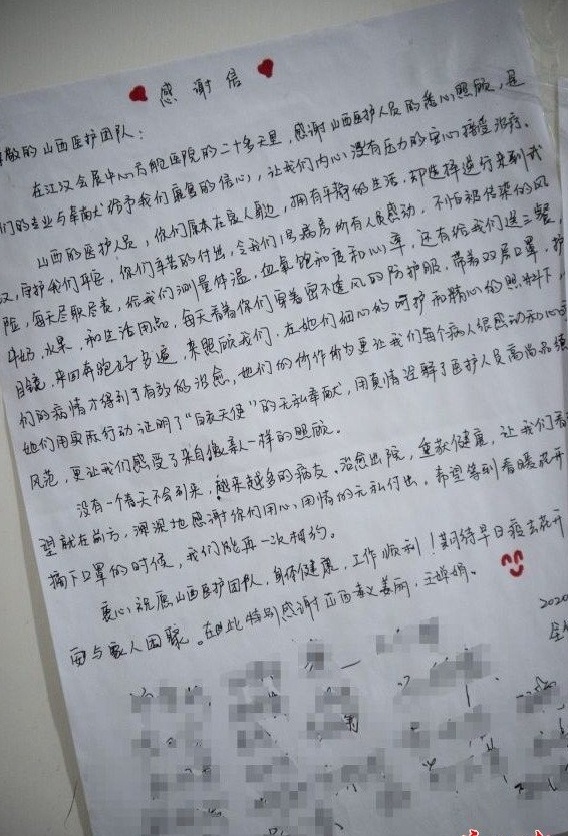 感谢信
敬的山西医护团队：
在江汉会展中心方舱医院的二十多天里，感谢山西医护人员的悉心照顾，是
们的专业与奉献给予我们最多的信心，让我们内心没有压力的安心接受治疗。
山西的医护人员，你们原本在家人身边，拥有平静的生活，却选择逆行来到武
汉，守护我们平安，你们辛苦的付出，令我们1号病房所有人员感动，不怕被传染的风
险，每天尽职尽责，给我们测量体温、血氧饱和度和心率，还有给我们送三餐，
牛奶，水果，和生活用品，每天看着你们穿着密不透风的防护服，带着双层口罩，护
目镜，来回奔跑好多遍，来照顾我们，在她们细心的呵护和精心的照料下，
们的病情才得到了有效的治愈，她们的所作所为更让我们每个病人很感动和心
她们用实际行动证明了“白衣天使”的无私奉献，用真情诠释了医护人员高尚品德
风范，更让我们感受了来自像亲人一样的照顾。
没有一个春天不会到来，越来越多的病友，治愈出院，重获健康，让我们看
望就在前方，深深地感谢你们用心，用情的无私付出。希望等到春暖花开
摘下口罩的时候，我们能再一次相约。
衷心祝愿山西医护团队，身体健康，工作顺利！期待早日疫去花开
面与家人团聚。在此特别感谢山西孝义姜丽，王婵娟。
2020
全